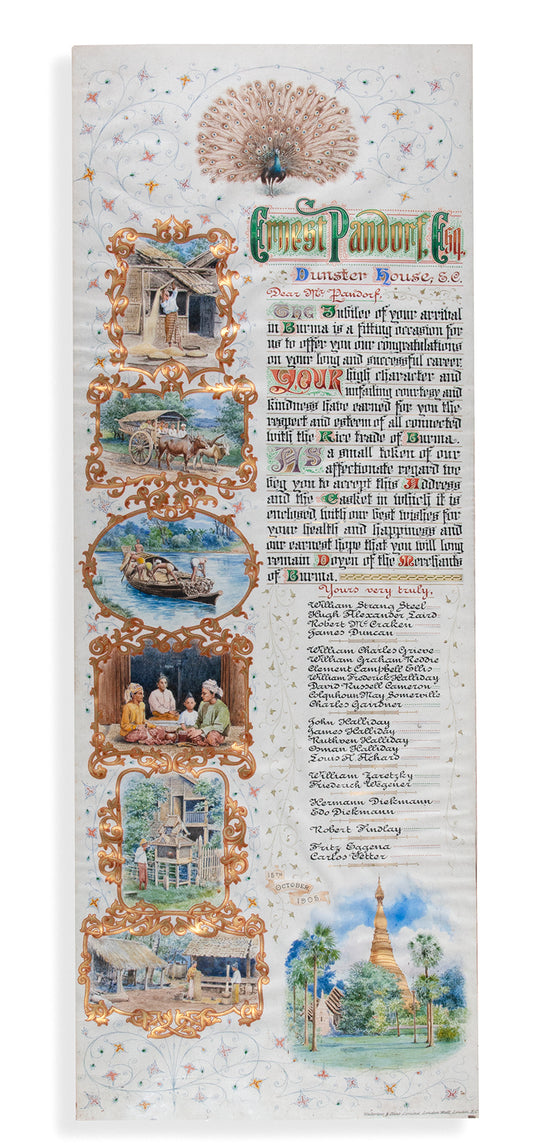 Ernest Pandorf, Esq.
Dunster House, E.C.
Dear Mr Pandorf,
The Jubilee of your arrival
in Burma is a fitting occasion for
us to offer you our congratulations
on your long and successful career.
Your high character and
unfailing courtesy and
kindness have earned for you the
respect and esteem of all connected
with the Rice trade of Burma.
As a small token of our
affectionate regard we
beg you to accept this Address
and the Casket in which it is
enclosed with our best wishes for
your health and happiness and
our earnest hope that you will long
remain Doyen of the Merchants
of Burma.
Yours very truly,
William Strang Steel
Hugh Alexander Laird
Robert McCraken
James Duncan
William Charles Grieve
William Graham Keddie
Clement Campbell Ellis
William Frederick Halliday
David Russell Cameron
Colquhoun May Somerville
Charles Gairdner
John Halliday
James Halliday
Ruthven Halliday
Osman Halliday
Louis A. Achard
William Zaretzky
Friederich Wegener
Hermann Diekmann
Edo Diekmann
Robert Findlay
Fritz Eggena
Carlos Vetter
15th
October
1905.
London Wall, London, E.C.